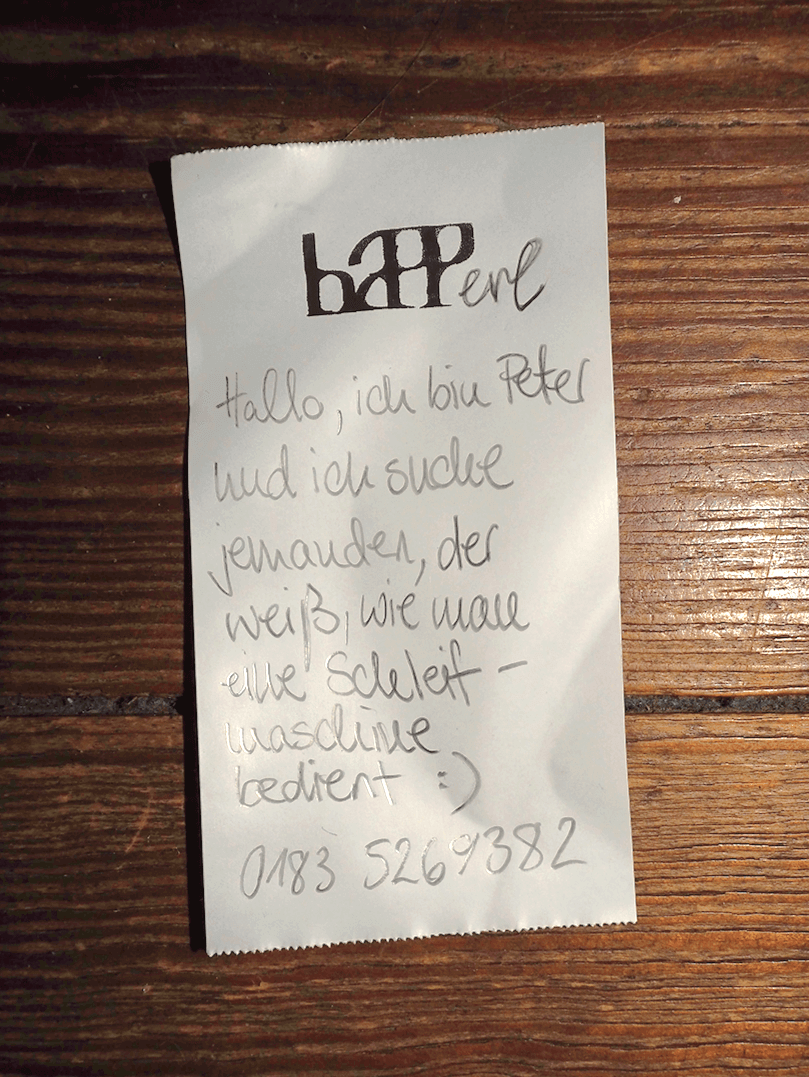 bapperl
Hallo, ich bin Peter
und ich suche
jemanden, der
weiß, wie man
eine Schleif-
maschine
bedient :)
0183 5269382